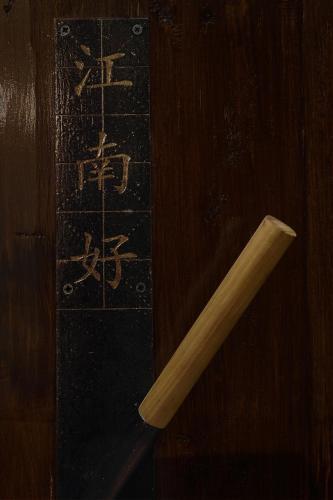 江南好